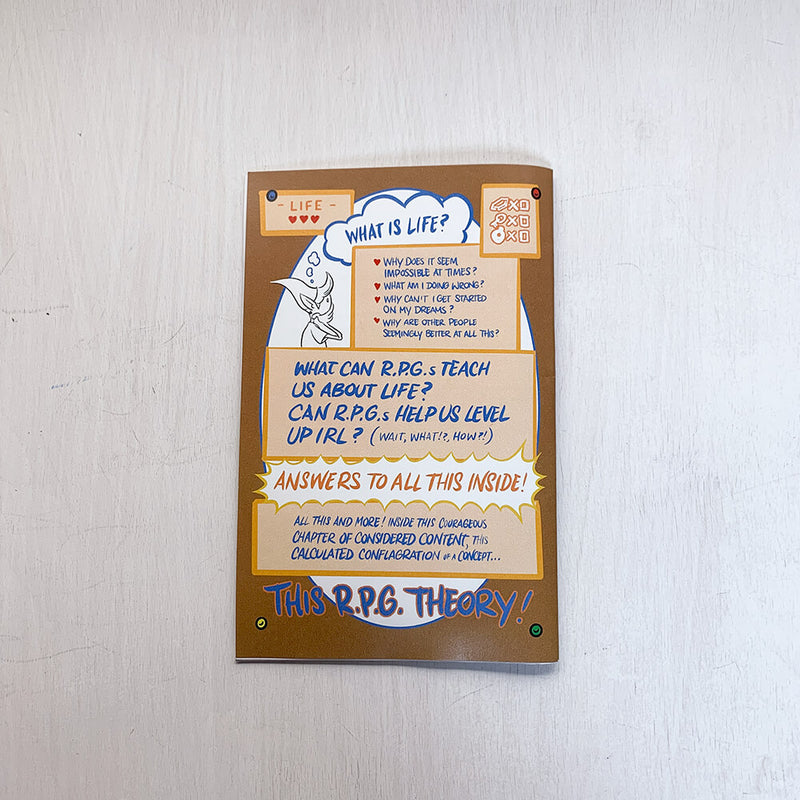 - LIFE -
WHAT IS LIFE?
X
X
X
WHY DOES IT SEEM
IMPOSSIBLE AT TIMES?
WHAT AM I DOING WRONG?
WHY CAN'T I GET STARTED
ON MY DREAMS?
WHY ARE OTHER PEOPLE
SEEMINGLY BETTER AT ALL THIS?
WHAT CAN R.P.G.s TEACH
US ABOUT LIFE?
CAN R.P.G.s HELP US LEVEL
UP IRL? (WAIT, WHAT!?, HOW?!)
ANSWERS TO ALL THIS INSIDE!
ALL THIS AND MORE! INSIDE THIS COURAGEOUS
CHAPTER OF CONSIDERED CONTENT, THIS
CALCULATED CONFLAGRATION OF A CONCEPT...
THIS R.P.G. THEORY!